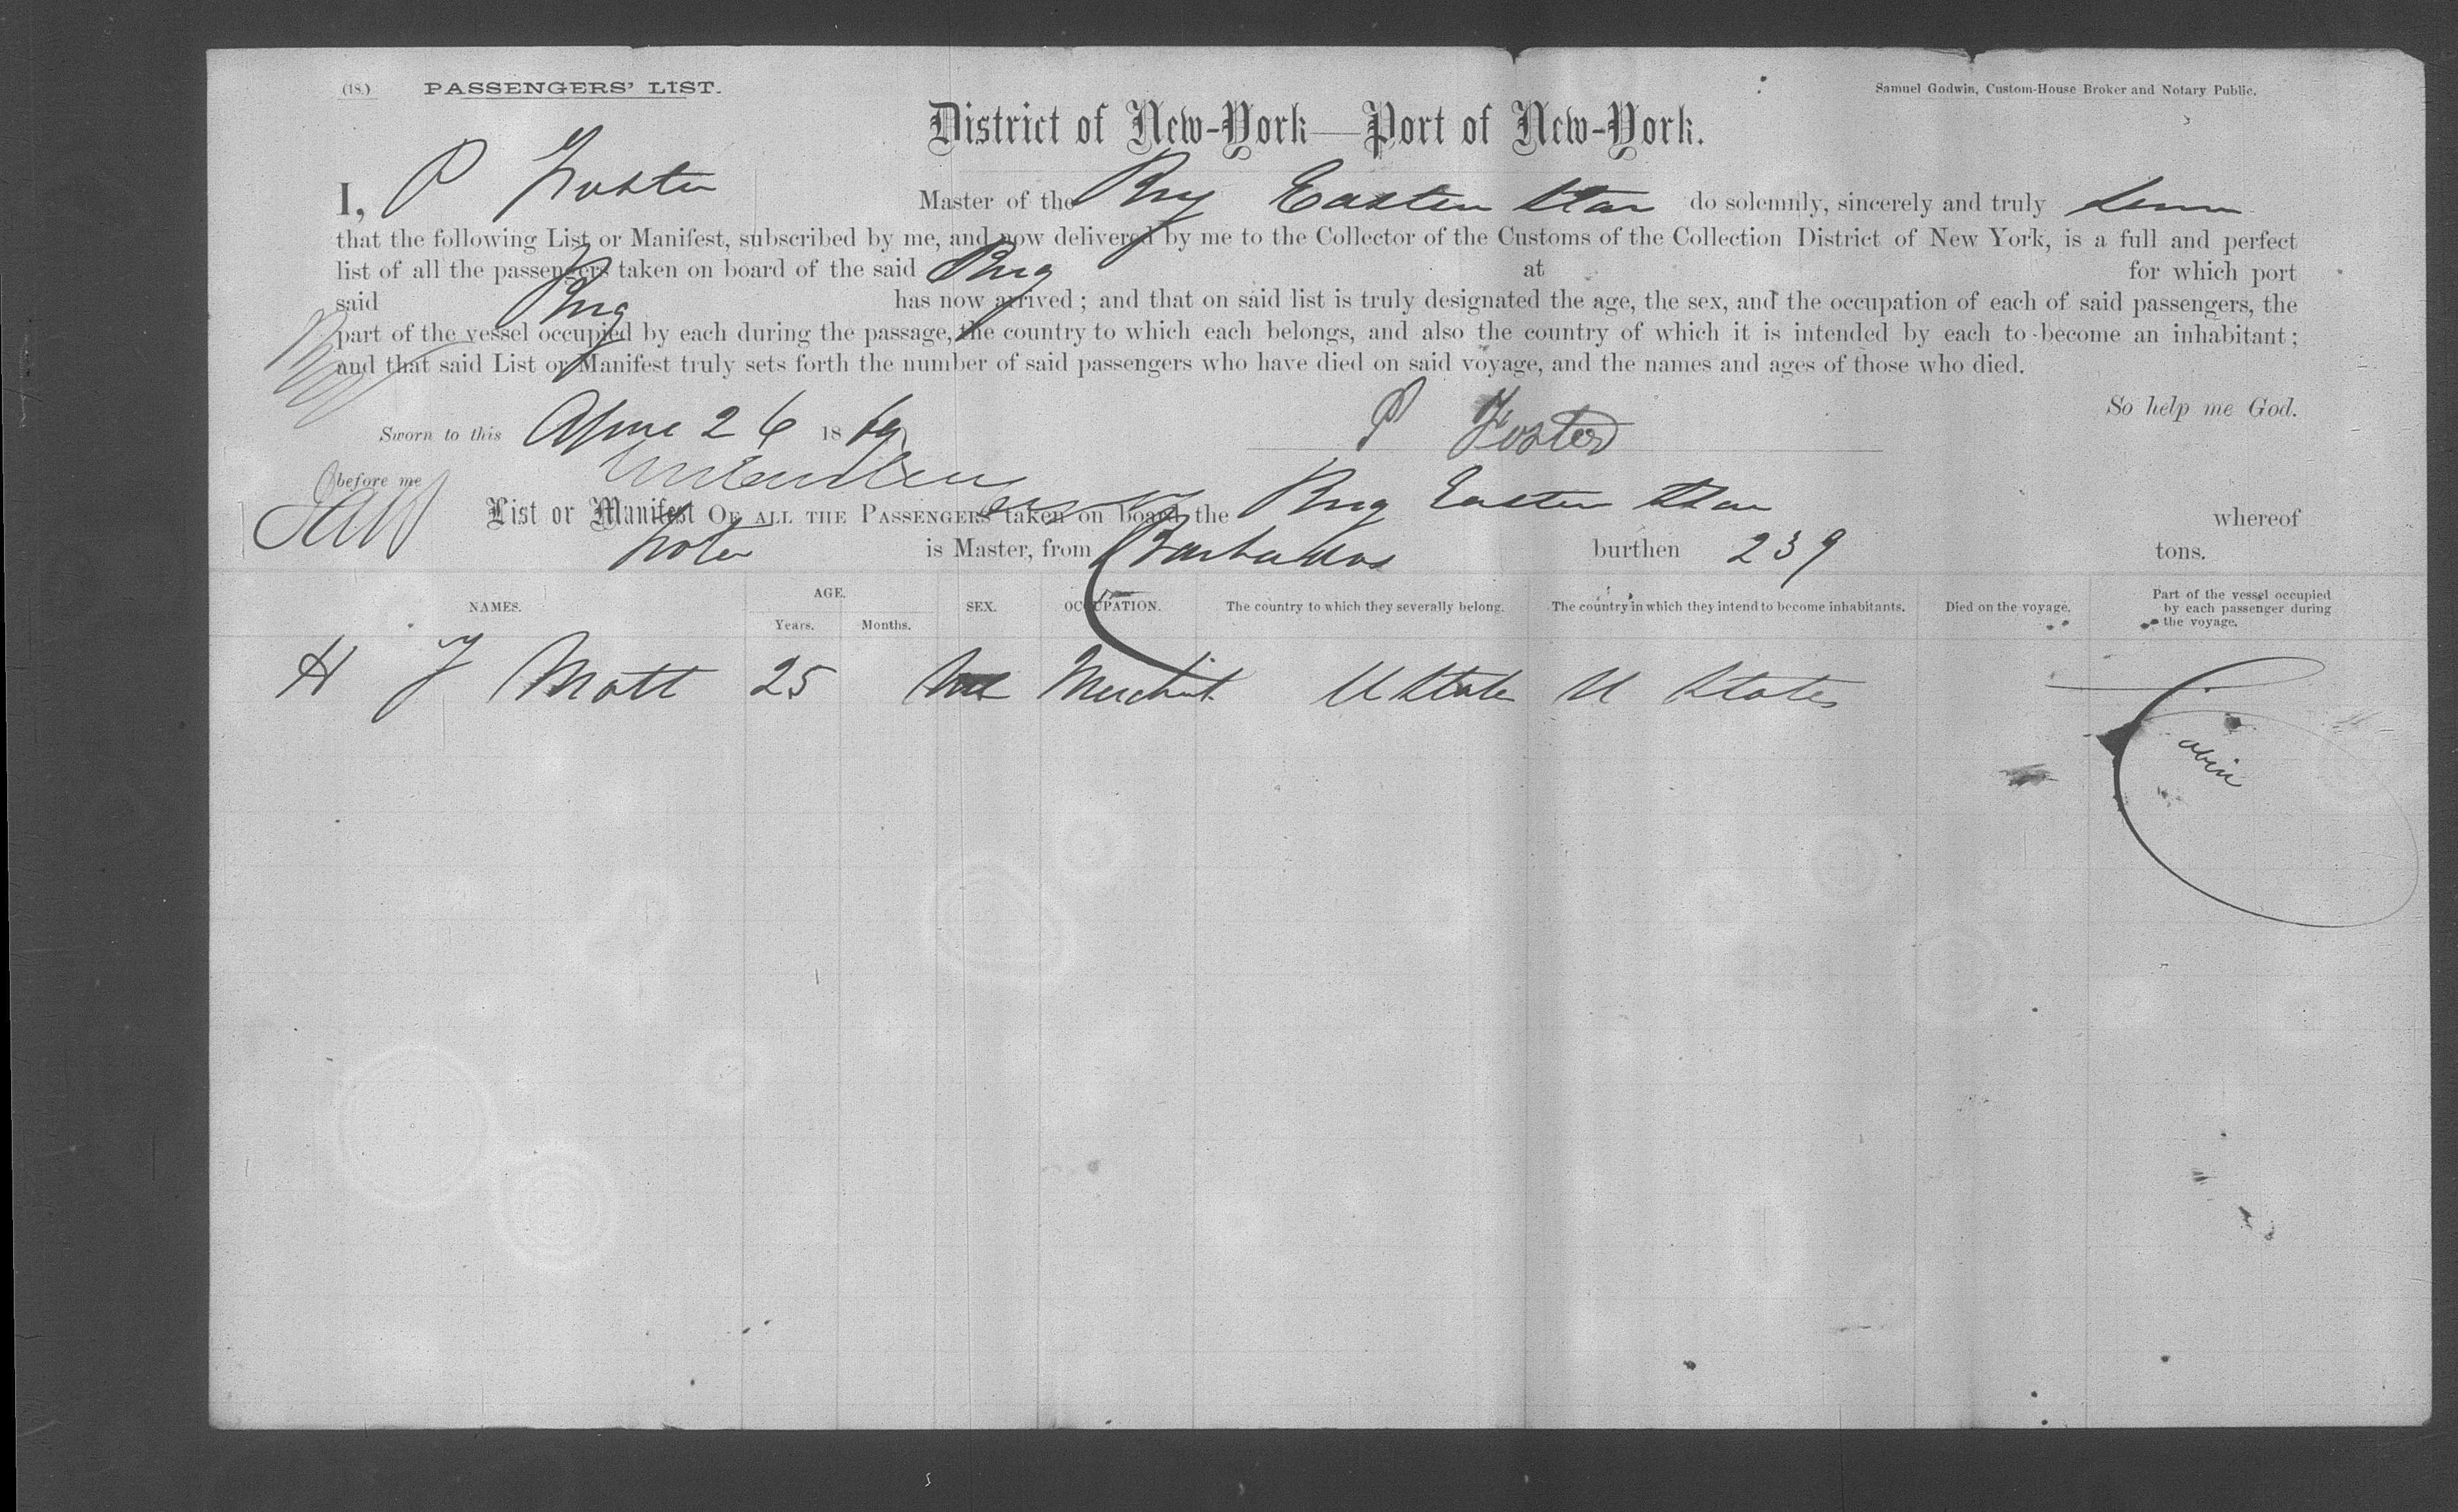 (18.) PASSENGERS' LIST.
Samuel Godwin, Custom-House Broker and Notary Public.
District of New-York—Port of New-York.
I, P Foster Master of the Brig Eastern Star do solemnly, sincerely and truly
that the following List or Manifest, subscribed by me, and now delivered by me to the Collector of the Customs of the Collection District of New York, is a full and perfect
list of all the passengers taken on board of the said Brig at for which port
said Brig has now arrived; and that on said list is truly designated the age, the sex, and the occupation of each of said passengers, the
part of the vessel occupied by each during the passage, the country to which each belongs, and also the country of which it is intended by each to become an inhabitant;
and that said List or Manifest truly sets forth the number of said passengers who have died on said voyage, and the names and ages of those who died.
So help me God.
Sworn to this April 26 1869 P Foster
before me
List or Manifest OF ALL THE PASSENGERS taken on board the Brig Eastern Star whereof
Foster is Master, from Barbados burthen 239 tons.
NAMES. AGE. SEX. OCCUPATION. The country to which they severally belong. The country in which they intend to become inhabitants. Died on the voyage. Part of the vessel occupied by each passenger during the voyage.
Years. Months.
H F Mott 25 Merchant U States U States
Cabin